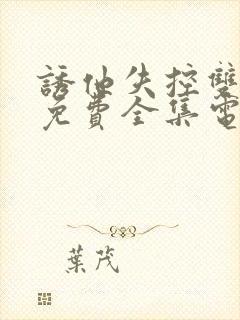 誘他失控雙
免費全集電
葉茂